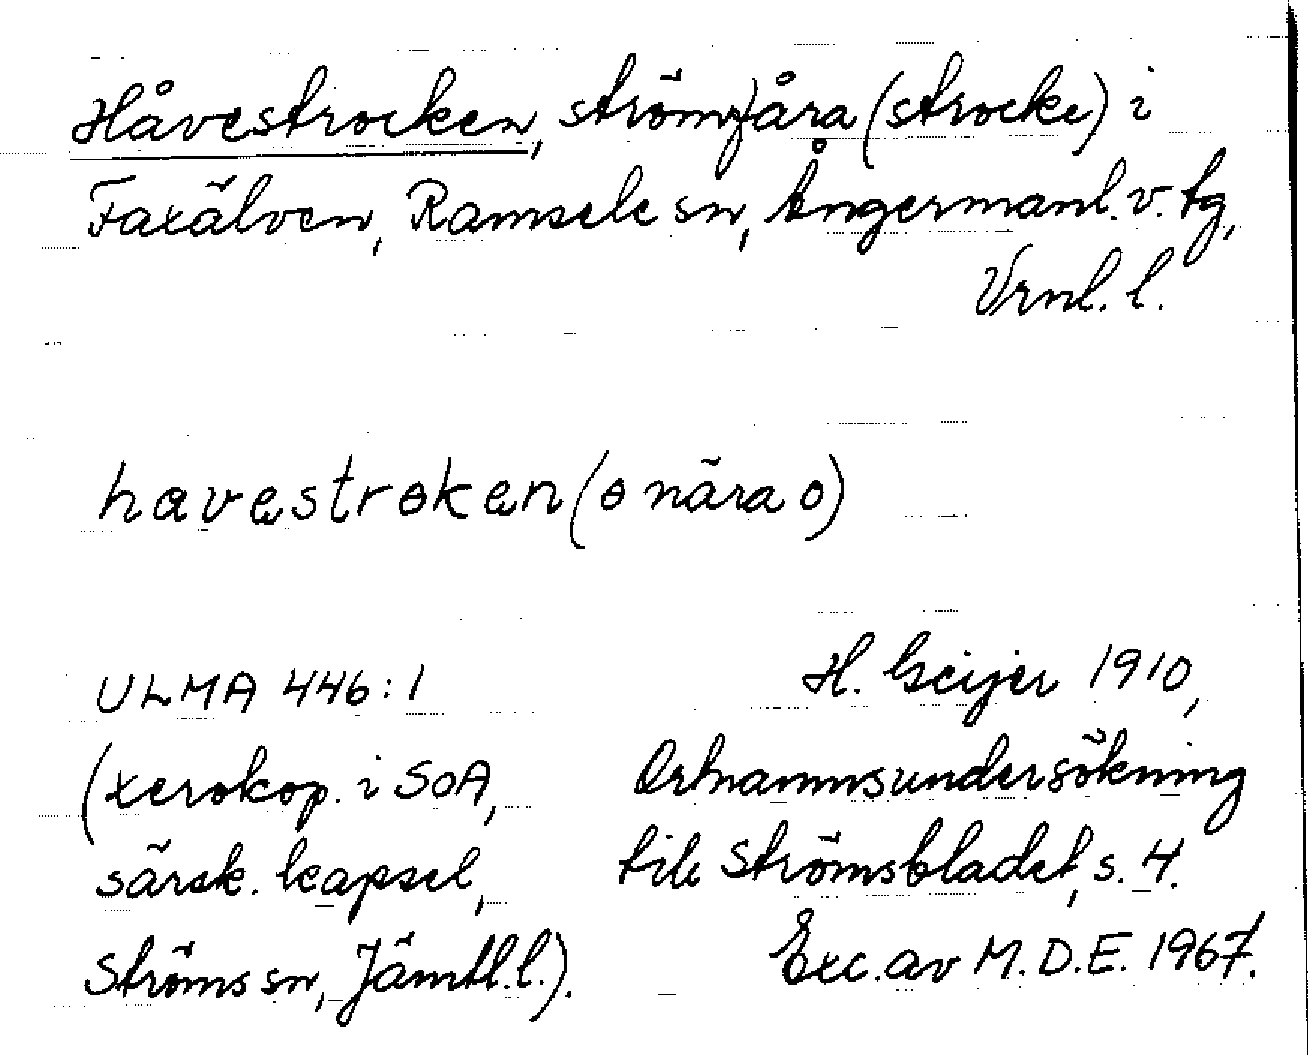 Håvestrocken, strömfåra (strocke) i
Faxälven, Ramsele sn, Ångermanl. v. tg,
Vrnl. l.
havestrɵken (ɵ nära o)
ULMA 446:1
(xerokop. i SOA,
särsk. kapsel,
Ströms sn, Jämtl. l.).
H. Geijer 1910,
Ortnamnsundersökning
till Strömsbladet, s. 4.
Exc. av M.D.E. 1967.